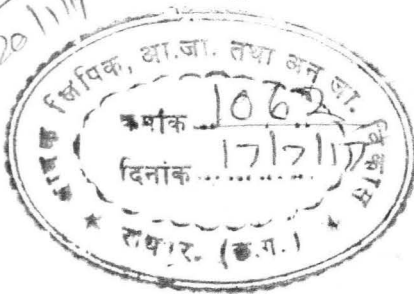 20/7/17
लिपिक, आ.जा. तथा अनु.जा. विकास
क्रमांक 1062
दिनांक 17/7/17
(छ.ग.)